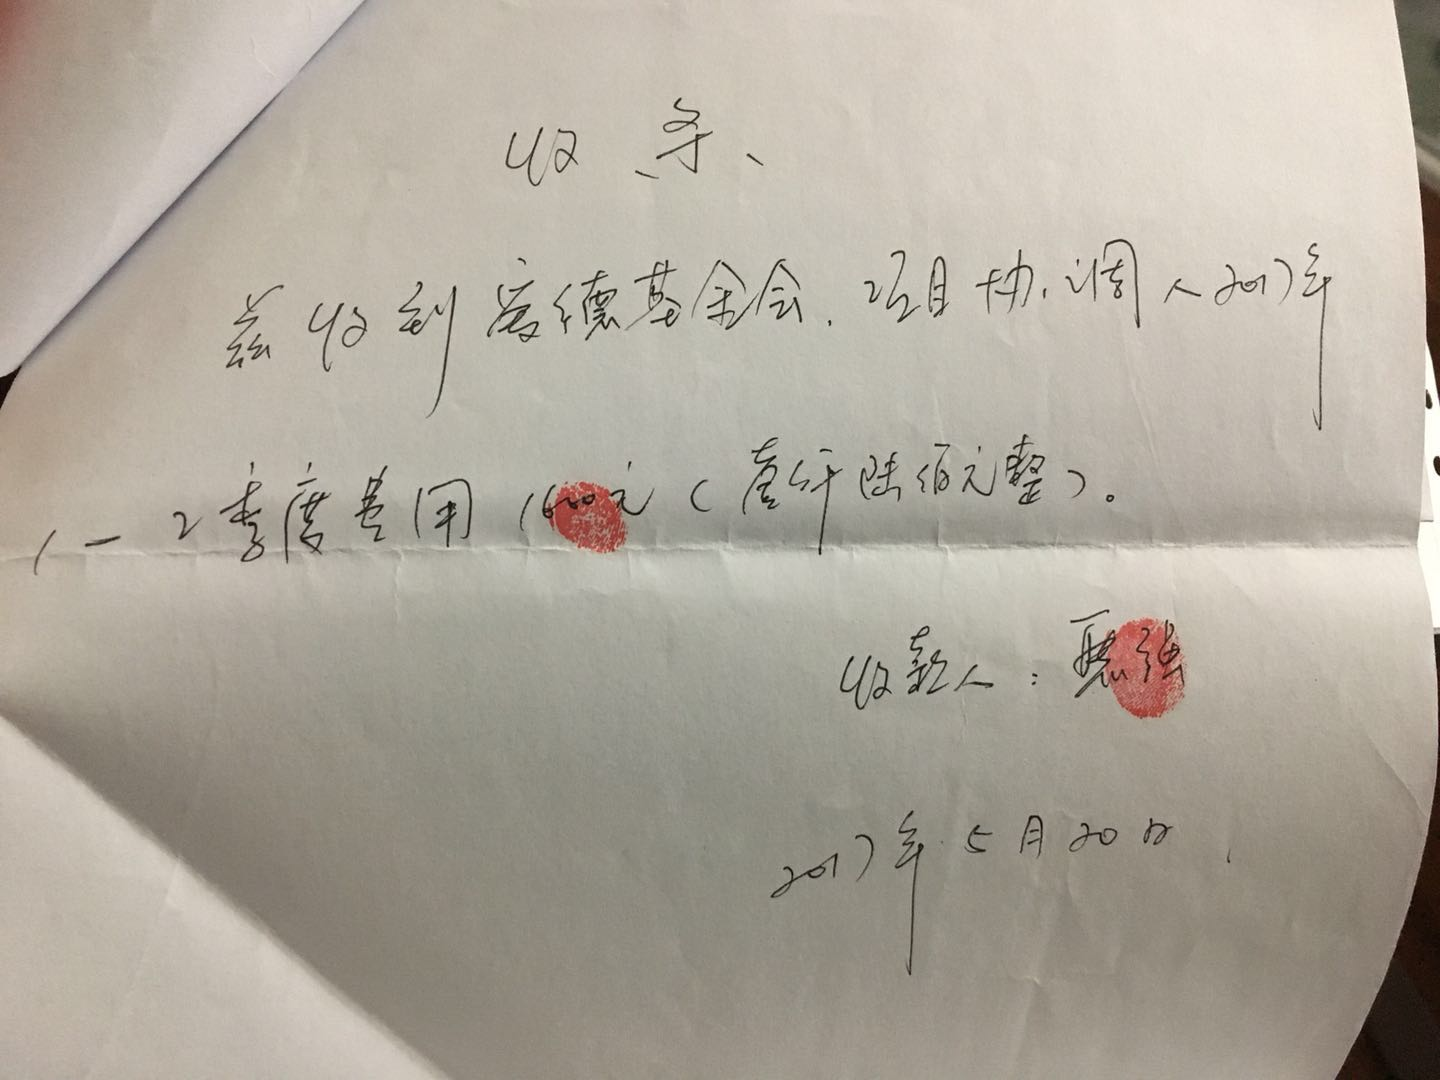 收条
兹收到爱德基金会项目协调人2017年
1-2季度费用1600元(壹仟陆佰元整)。
收款人:强
2017年5月20日